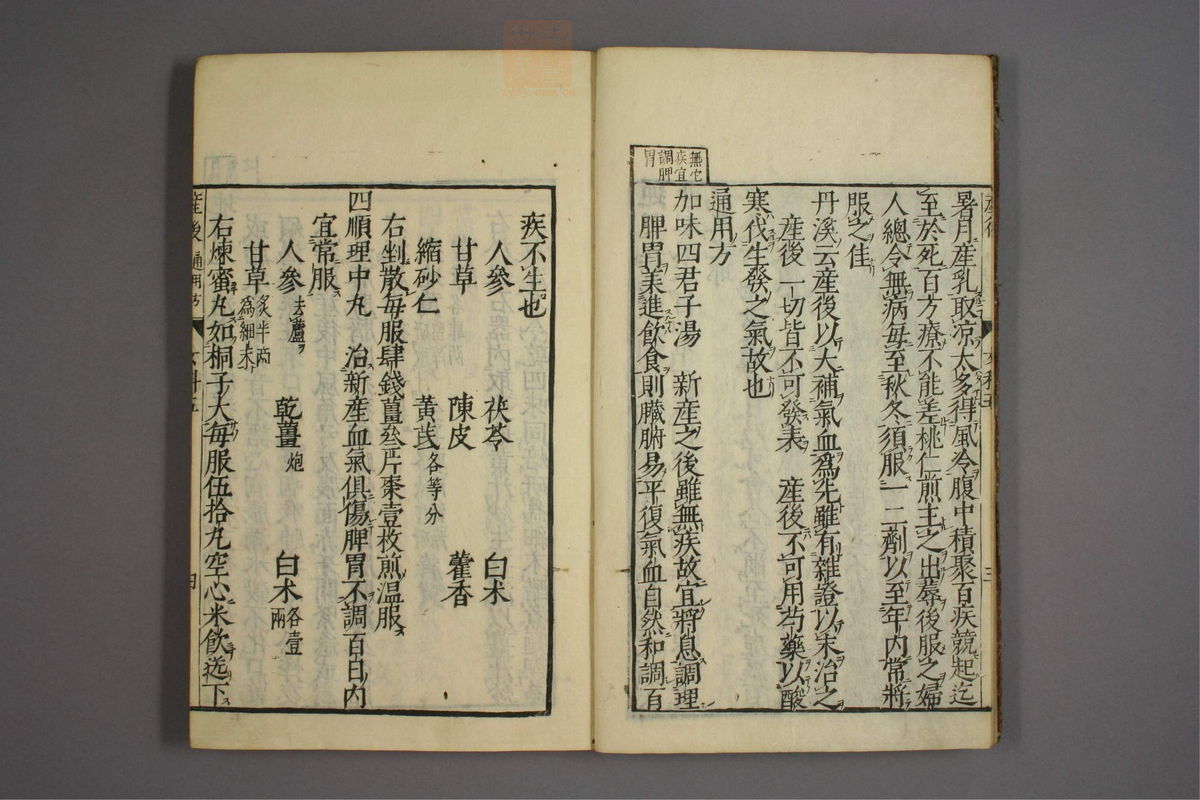 無它
疾宜
調脾
胃
暑月産乳取凉太多得風冷腹中積聚百疾競起迄
至於死百方療不能差桃仁煎主之出蓐後服之婦
人總令無病毎至秋冬須服一二劑以至年内常將
服之佳
丹溪云産後以大補氣血為先雖有雜證以末治之
産後一切皆不可發表 産後不可用芍藥以酸
寒伐生發之氣故也
通用方
加味四君子湯 新産之後雖無疾故宜將息調理
脾胃美進飲食則臓腑易平復氣血自然和調百
疾不生也
人參 茯苓 白术
甘草 陳皮 藿香
縮砂仁 黄芪各等分
右剉散毎服肆錢薑叁片棗壹枚煎温服
四順理中丸 治新産血氣俱傷脾胃不調百日内
宜常服
人參去蘆 乾薑炮 白术各壹兩
甘草炙半兩為細末
右煉蜜丸如桐子大毎服伍拾丸空心米飲送下
産後 通用方
四